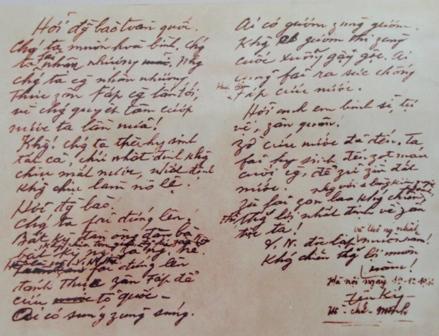 Hỡi đồng bào toàn quốc.
Chúng ta muốn hoà bình, chúng
ta nhân nhượng. Nhưng
chúng ta càng nhân nhượng
thực zân Fáp càng lấn tới,
vì chúng quyết tâm cướp
nước ta lần nữa!
Không! Chúng ta thà hy sinh
tất cả, chứ nhất định không
chịu mất nước, nhất định
không chịu làm nô lệ.
Hỡi đồng bào.
Chúng ta fải đứng lên.
Bất kỳ đàn ông đàn bà,
fải đứng lên
đánh thực zân Fáp để
cứu tổ quốc.
Ai có súng zùng súng.
Ai có gươm zùng gươm.
Không có gươm thì zùng
cuốc xuổng gậy gộc. Ai
cũng fải ra sức chống
Fáp cứu nước.
Hỡi anh em binh sĩ, tự
vệ, zân quân!
Zờ cứu nước đã đến, ta
fải hy sinh đến zọt máu
cuối cùng, để zữ zìn đất
nước.
Zù fải zan lao kháng chiến
thắng lợi nhất định về zân
tộc ta!
V.N. độc lập và thống nhất muôn năm!
Kháng chiến thắng lợi muôn
năm!
Hà nội ngày
Hồ chí Minh